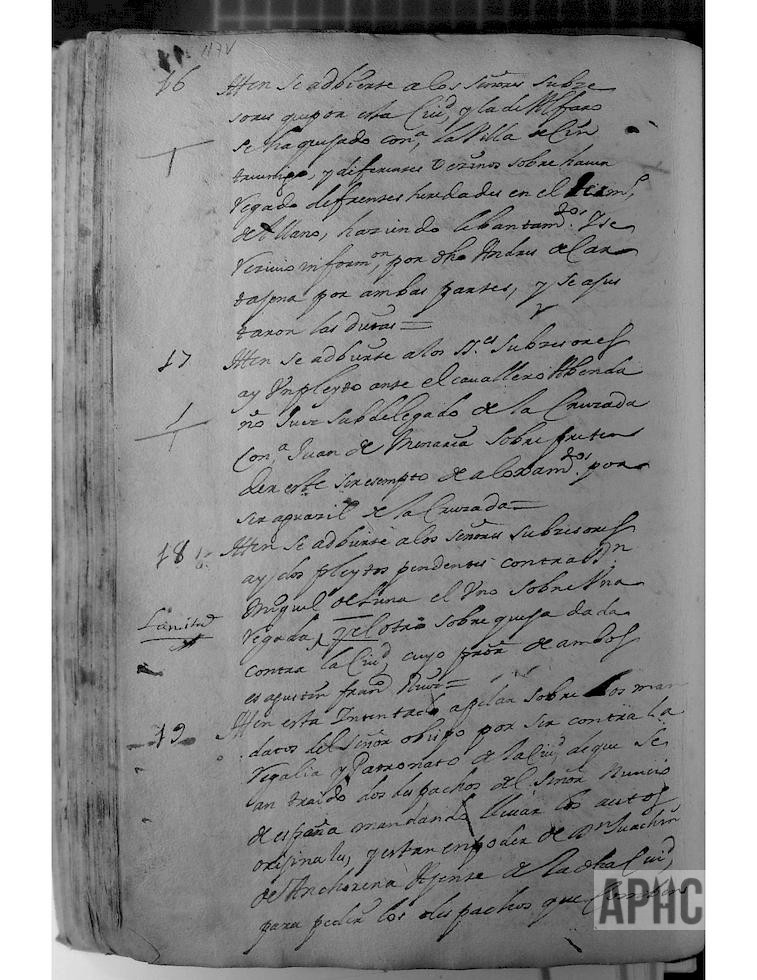 117V
16 Ytten se adbierte a los señores subze
sores que por esta Ciud, y la de Alfaro
se ha quejado con.a la Villa de Cin
truenigo, y diferentes vezinos sobre haver
Regado difrentes heredades en el term.o
del llano, haziendo lebantam.dos Y se
Rezivio inform.on, por dho Andres de Car
tajena por ambas partes, y se ajus
taron las duras =
17 Ytten se adbierte a los SS.es Subzesores
ay Un pleyto ante el cavallero Abenda
ño Juez Subdelegado de la Cruzada
Con.a Juan de sobre preten
der este ser esempto de aloxam.dos por
ser aguazil de la Cruzada =
18 Ytten se adbierte a los señores subzesores
ay dos pleytos pendentes contra Dn
Miguel de Luna el Uno sobre Una
Regada, y el otro sobre queja dada
contra la Ciud, cuyo proz.r de ambos
es agustin fran.co Ruiz =
19 Ytten esta Intentado apelar sobre los man
datos del Señor obispo por ser contra la
Regalia y Patronato de la Ciud, de que se
an traido dos despachos del Señor Nuncio
de españa mandando llevar los autos
originales, y estan en poder de Dn Juachin
de Anchorena Ajente de la dha Ciud,
para pedir los despachos que
APHC